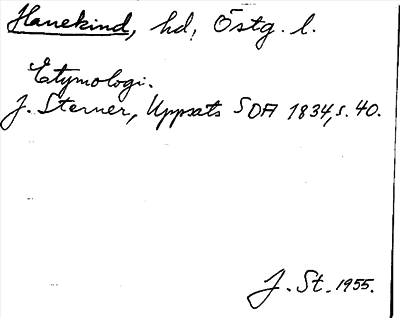 Hanekind, hd, Östg. l.
Etymologi.
J. Sterner, Uppsats SOA 1834, s. 40.
J. St. 1955.